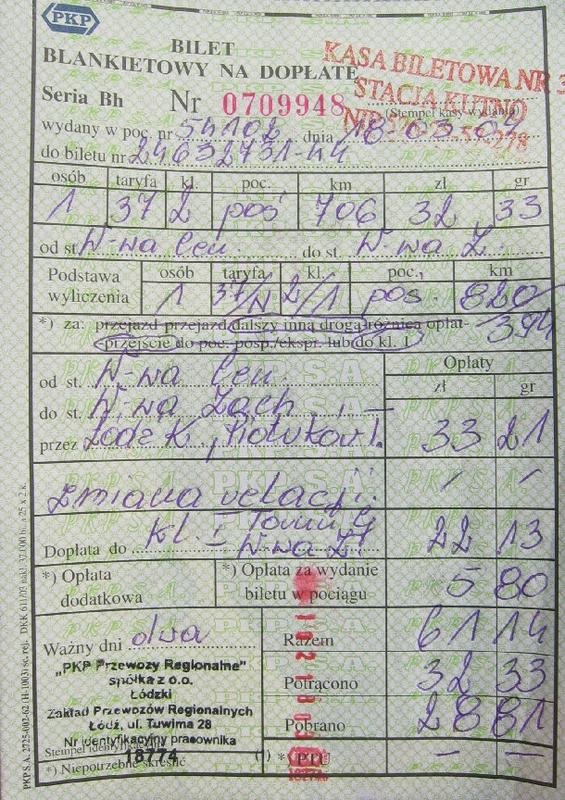 PKP
BILET
BLANKIETOWY NA DOPŁATĘ
KASA BILETOWA NR 3
STACJA KUTNO
Seria Bh Nr 0709948
(Stempel kasy wydania)
wydany w poc. nr 54102 dnia 18-03-04
do biletu nr 24632731-44
osób taryfa kl. poc. km zł gr
1 37 2 pos 706 32 33
od st. W-wa Cen. do st. W-wa Z.
Podstawa wyliczenia osób taryfa kl. poc. km
1 37/N 2/1 pos. 820/394
*) za: przejazd przejazd dalszy inną drogą różnica opłat-
przejście do poc. posp./ekspr. lub do kl. 1
od st. W-wa Cen Opłaty
do st. W-wa Zach. zł gr
przez Łódź K, Piotrków T. 33 21
zmiana relacji:
Dopłata do kl. I Toruń G W-wa Z. 22 13
*) Opłata dodatkowa
*) Opłata za wydanie biletu w pociągu 5 80
Ważny dni dwa
Razem 61 14
Potrącono 32 33
Pobrano 28 81
*PTU – –
"PKP Przewozy Regionalne"
spółka z o.o.
Łódzki
Zakład Przewozów Regionalnych
Łódź, ul. Tuwima 28
Nr identyfikacyjny pracownika
Stempel identyfikacyjny
18774
*) Niepotrzebne skreślić